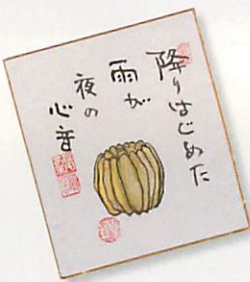 降りはじめた
雨が
夜の
心音